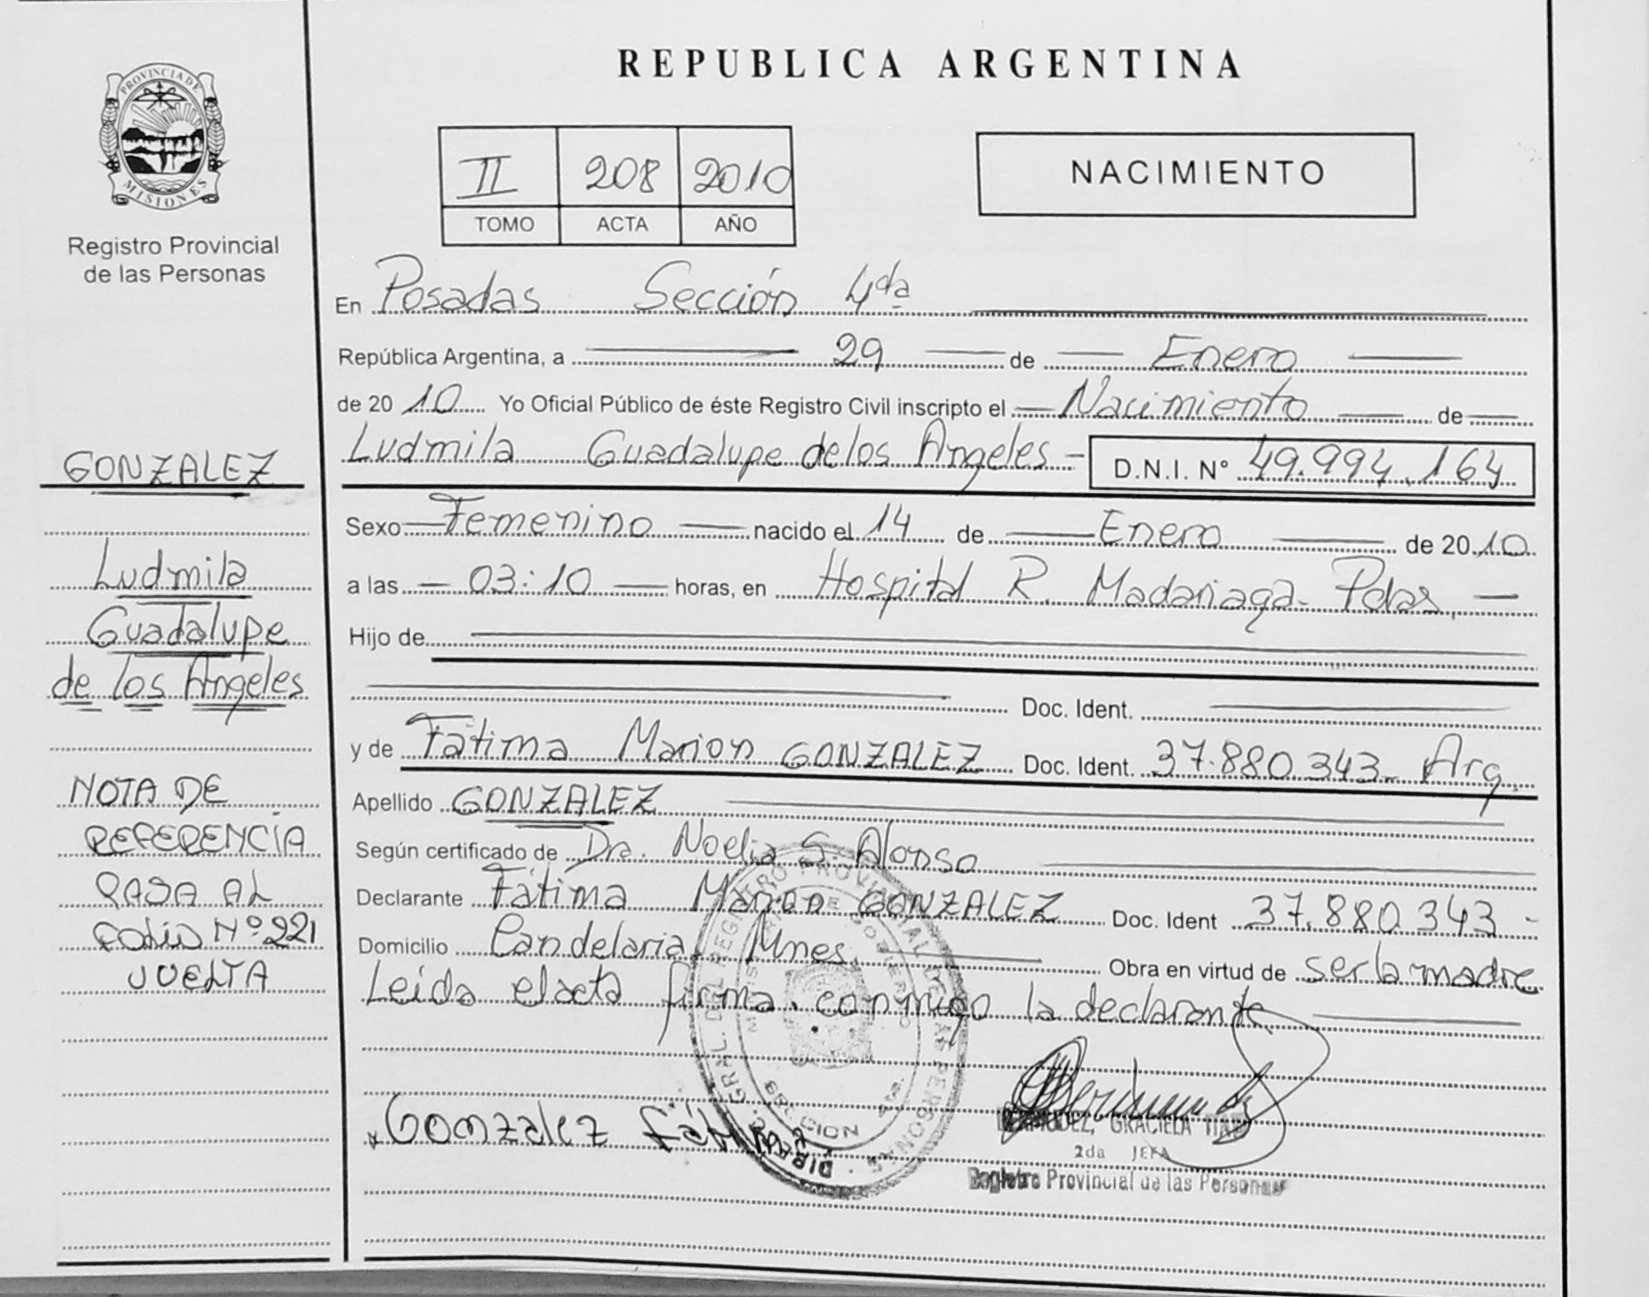 PROVINCIA DE
MISIONES
Registro Provincial
de las Personas
GONZALEZ
Ludmila
Guadalupe
de los Angeles
NOTA DE
REFERENCIA
PASA AL
FOLIO Nº 221
VUELTA
REPUBLICA ARGENTINA
II 208 2010
TOMO ACTA AÑO
NACIMIENTO
En Posadas Sección 4da
República Argentina, a 29 de Enero
de 2010 Yo Oficial Público de éste Registro Civil inscripto el Nacimiento de
Ludmila Guadalupe de los Angeles - D.N.I. Nº 49.994.164
Sexo Femenino nacido el 14 de Enero de 2010
a las 03:10 horas, en Hospital R. Madariaga- Pdas
Hijo de
Doc. Ident.
y de Fátima Marion GONZALEZ Doc. Ident. 37.880.343- Arg.
Apellido GONZALEZ
Según certificado de Dra. Noelia S. Alonso
Declarante Fátima Marion GONZALEZ Doc. Ident 37.880.343-
Domicilio Candelaria Mnes. Obra en virtud de ser la madre
Leida el acta firma conmigo la declarante
Gonzalez Fátima
BERMUDEZ, GRACIELA
2da JEFA
Registro Provincial de las Personas